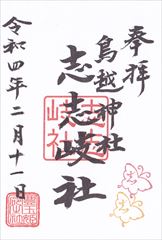 奉拝
鳥越神社
志志岐社
令和四年二月十一日